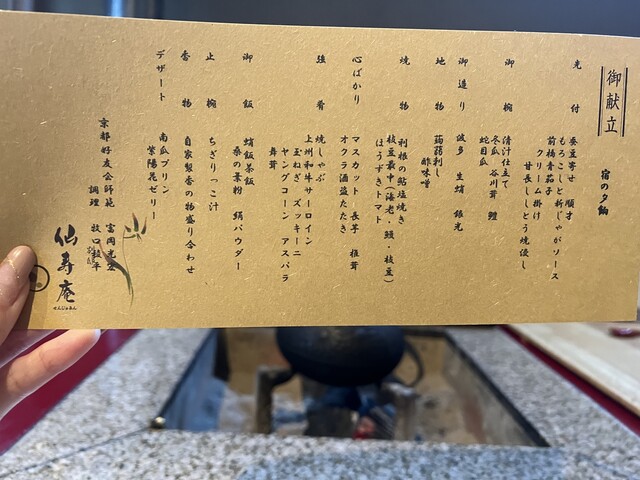 御献立
宿の夕餉
先付
蚕豆寄せ 順才
もろこしと新じゃがソース
前橋青茄子
クリーム掛け
甘長ししとう焼浸し
御椀
清汁仕立て
冬瓜 谷川茸 鱧
蛇目瓜
御造り
波多 生蛸 銀光
地物
蒟蒻刺し
酢味噌
焼物
利根の鮎塩焼き
枝豆最中(海老・鰻・枝豆)
ほうずきトマト
心ばかり
マスカット 長芋 椎茸
オクラ酒盗たたき
強肴
焼しゃぶ
上州和牛サーロイン
玉ねぎ ズッキーニ
ヤングコーン アスパラ
舞茸
御飯
蛸飯茶飯
桑の葉粉 絹パウダー
止椀
ちぎりっこ汁
香物
自家製香の物盛り合わせ
デザート
南瓜プリン
紫陽花ゼリー
京都好友会師範
調理
仙寿庵
せんじゅあん